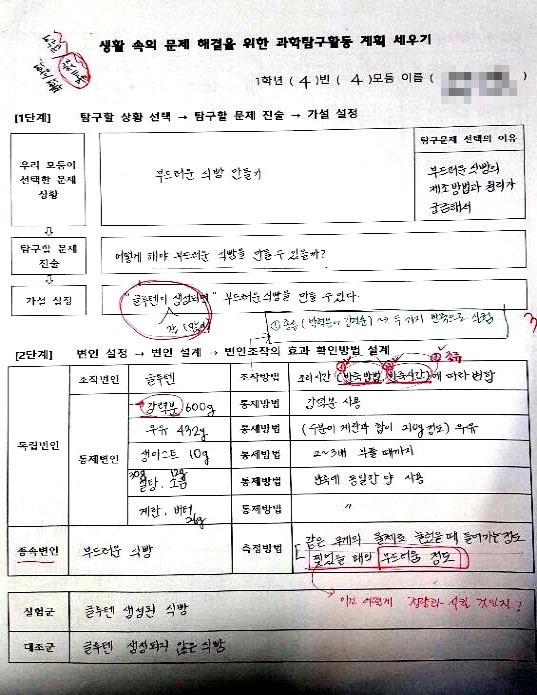 생활 속의 문제 해결을 위한 과학탐구활동 계획 세우기
1학년 ( 4 )반 ( 4 )모둠 이름 ( )
[1단계] 탐구할 상황 선택 → 탐구할 문제 진술 → 가설 설정
우리 모둠이 선택한 문제 상황
부드러운 식빵 만들기
탐구문제 선택의 이유
부드러운 식빵의
제조방법과 원리가
궁금해서
탐구할 문제 진술
어떻게 해야 부드러운 식빵을 만들 수 있을까?
가설 설정
"글루텐이 생성되면" 부드러운 식빵을 만들 수 있다.
잘 (많이)
① 종류 (박력분이 강력분) → 두 가지 반죽으로 실험
3
[2단계] 변인 설정 → 변인 설계 → 변인조작의 효과 확인방법 설계
② 종류
독립변인
조작변인
글루텐
조작방법
조리시간 (반죽방법, 반죽시간)에 따라 변함
통제변인
강력분 600g
통제방법
강력분 사용
우유 432g
통제방법
(수분이 계란과 합이 정도) 우유
생이스트 10g
통제방법
2~3배 부풀 때까지
30g 12g
설탕, 소금
통제방법
반죽에 동일한 양 사용
계란, 버터
26g
통제방법
"
종속변인
부드러운 식빵
측정방법
같은 무게의 물체로 눌렀을 때 들어가는 정도
찢었을 때의 부드러움 정도
이걸 어떻게 정량화 시킬 것인지?
실험군
글루텐 생성된 식빵
대조군
글루텐 생성되지 않은 식빵